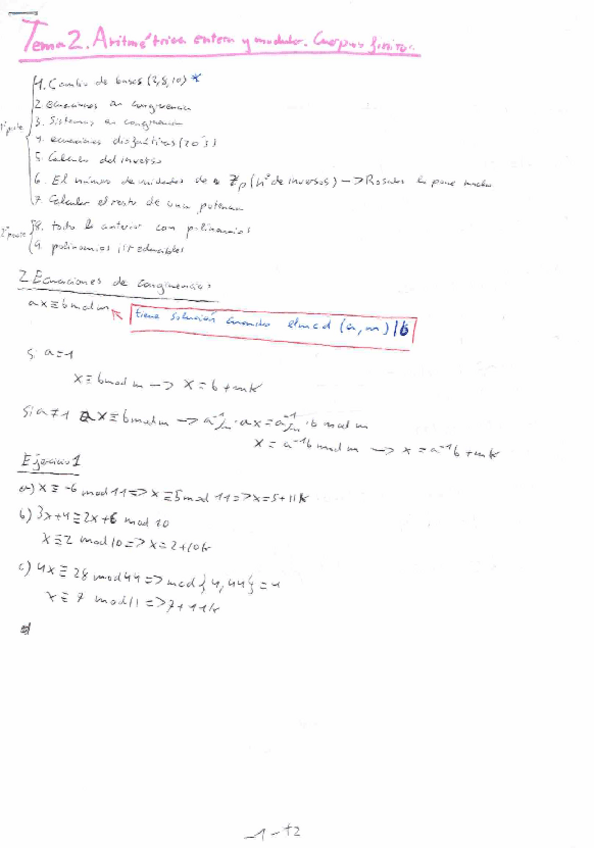 Tema 2. Aritmética entera y modular. Cuerpos finitos.
1ª parte
1. Cambio de bases (2,8,10) *
2. ecuaciones en congruencia
3. Sistemas en congruencia
4. ecuaciones diofánticas (20's)
5. Calculo del inverso
6. El número de unidades de Zp (nº de inversos) —> Rosario lo pone mucho
7. Calcular el resto de una potencia
2ª parte
8. todo lo anterior con polinomios
9. polinomios irreducibles
2 Ecuaciones de congruencias
ax≡b mod m
tiene solución cuando el mcd (a,m)|b
Si a=1
x≡b mod m —> x=b+mk
Si a≠1 ax≡b mod m —> a⁻¹·ax=a⁻¹·b mod m
x=a⁻¹b mod m —> x=a⁻¹b+mk
Ejercicio 1
a) x≡-6 mod 11=>x≡5 mod 11=>x=5+11k
b) 3x+4≡2x+6 mod 10
x≡2 mod 10=>x=2+10k
c) 4x≡28 mod 44=>mcd{4,44}=4
x≡7 mod 11=>7+11k
d
-1-t2